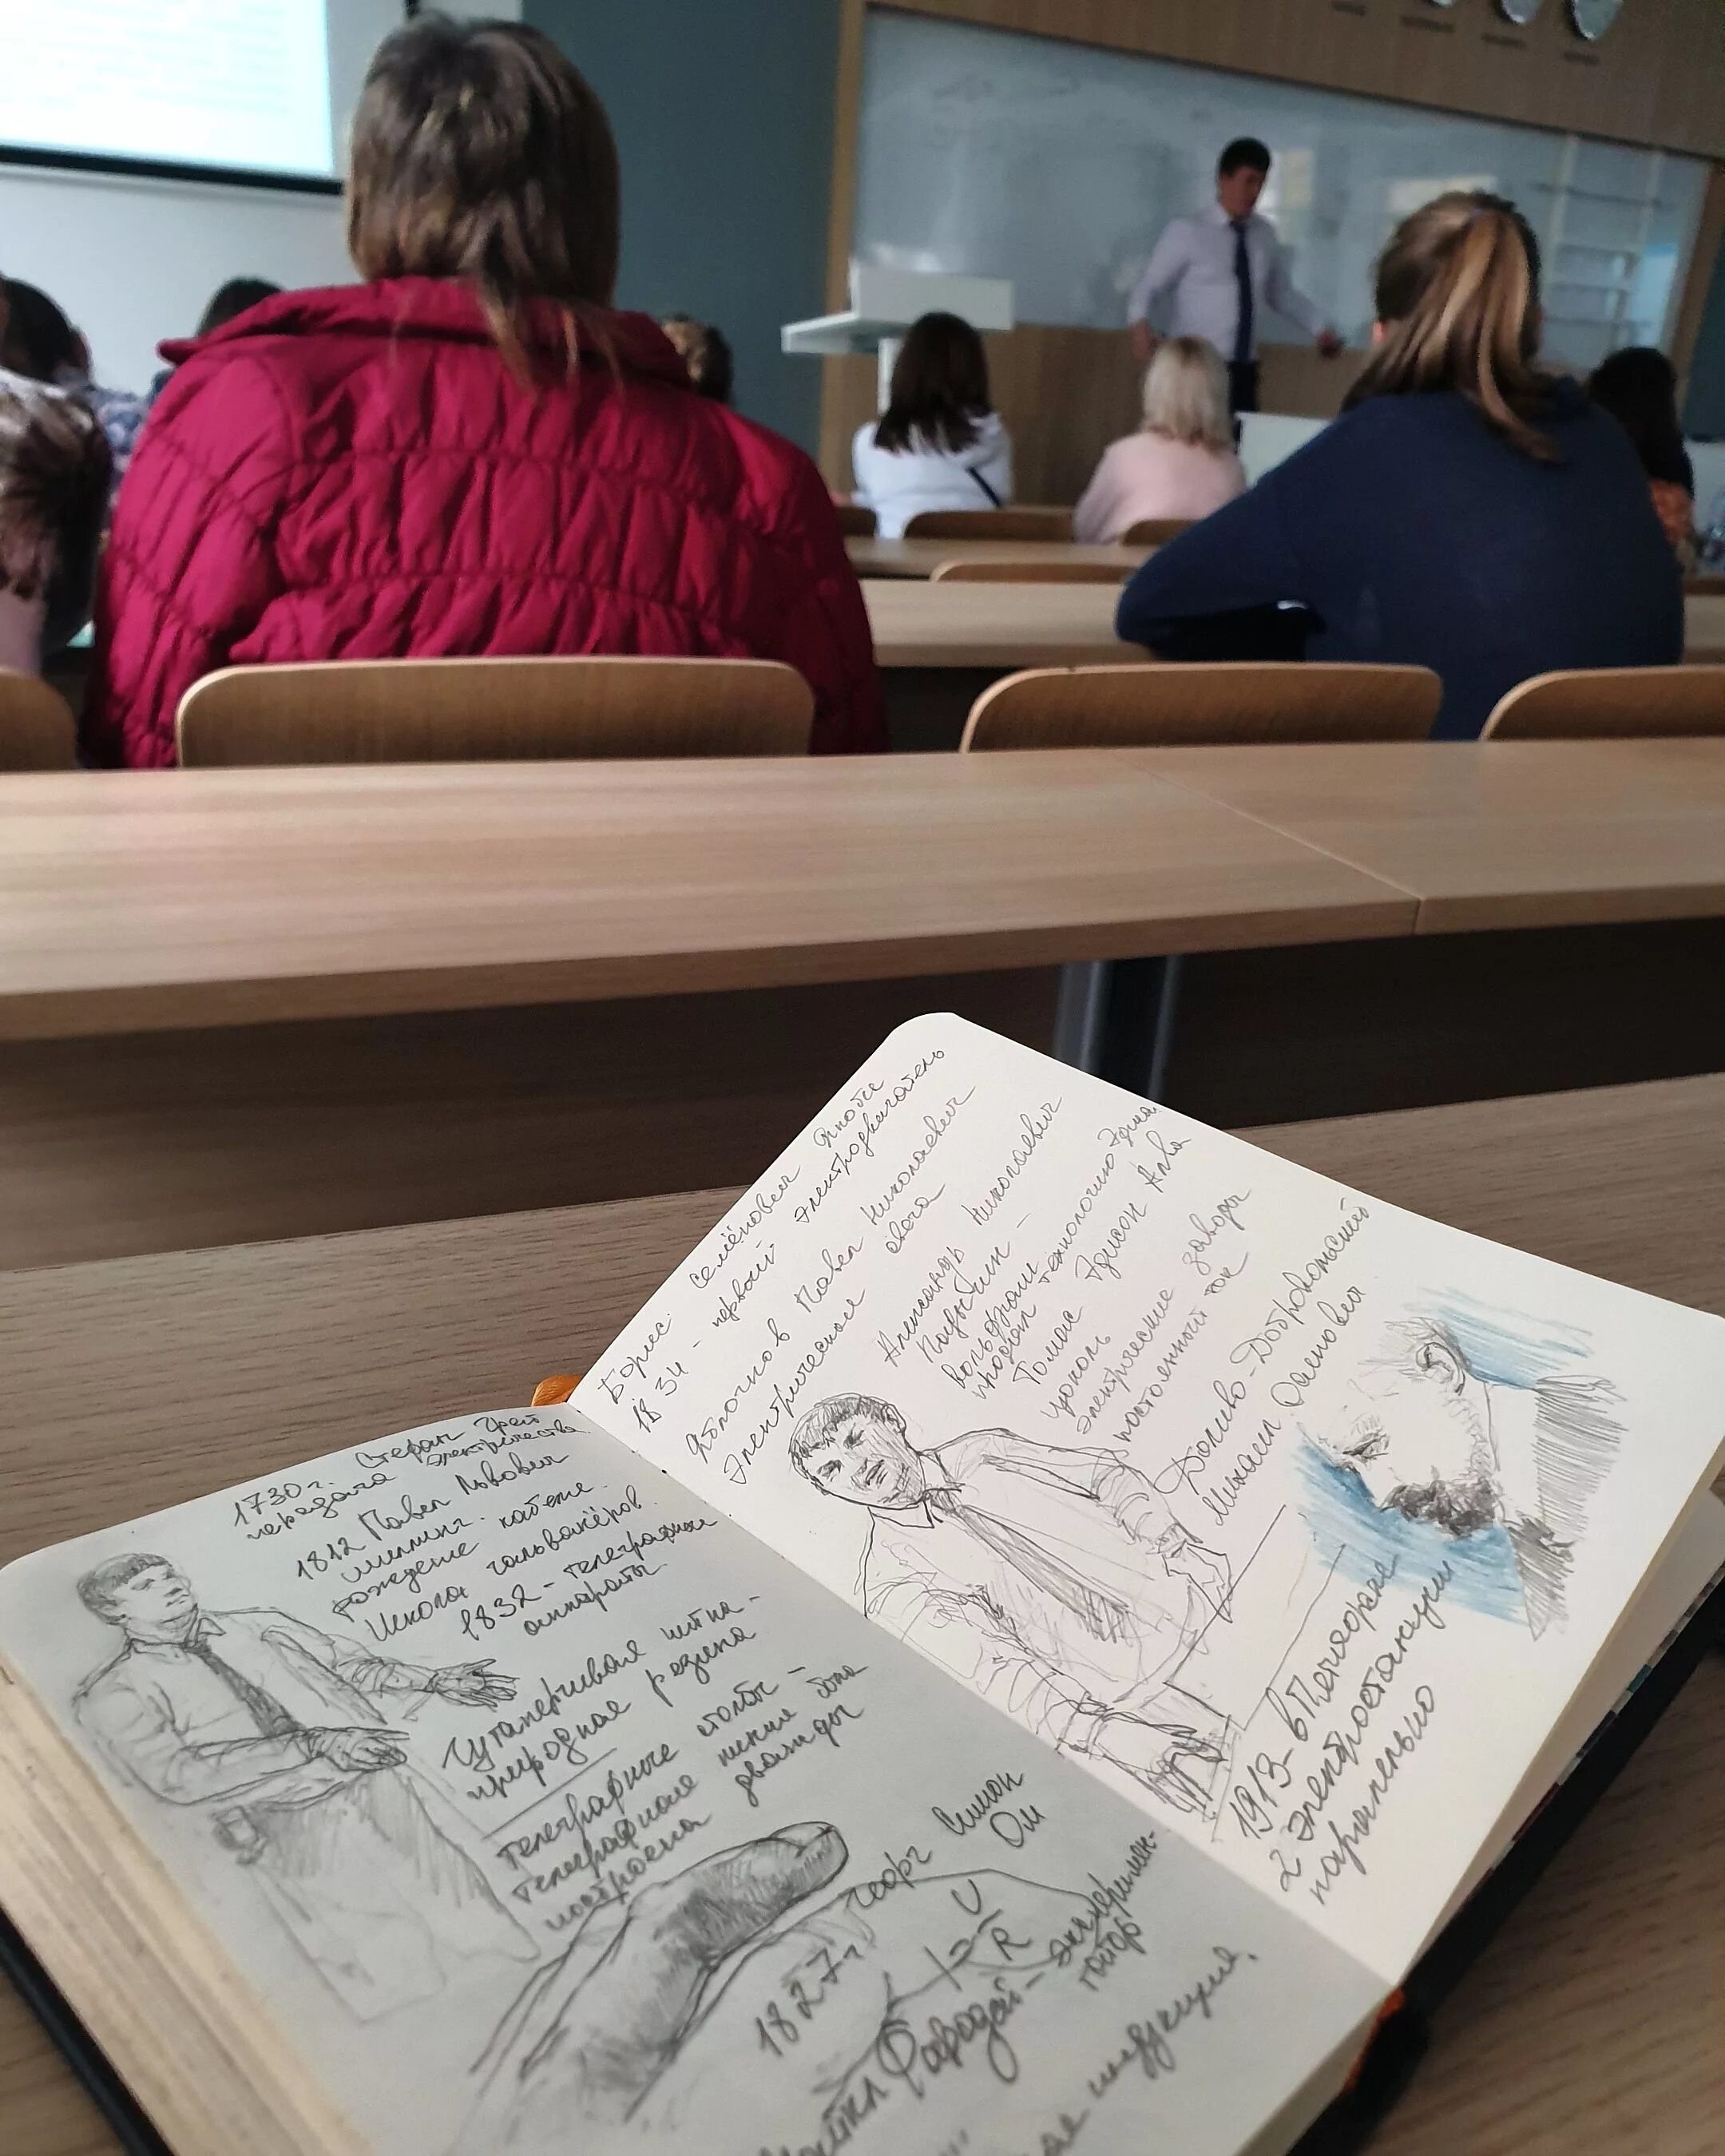 1730 г. Стефан Грей
передача электричества
1812 Павел Львович
Шиллинг.
рождение кабеля.
Школа гальванёров.
1832 - телеграфные
аппараты
Гутаперчивая нитка -
природная резина
телеграфные столбы -
телеграфная линия была
построена дважды
Георг Симон
Ом
1827 г.
I = U
R
Майкл Фарадей - эксперимен-
татор
индукция.
Борис Семёнович Якоби
1834 - первый электродвигатель
Яблочков Павел Николаевич
Электрическая свеча
Александр Николаевич
Лодыгин -
вольфрам
продал технологию Эдиа.
Томас Эдисон Алва
цоколь
электрические заводы
постоянный ток
Доливо-Добровольский
Михаил Осипович
1913 - в
2 электростанции
параллельно